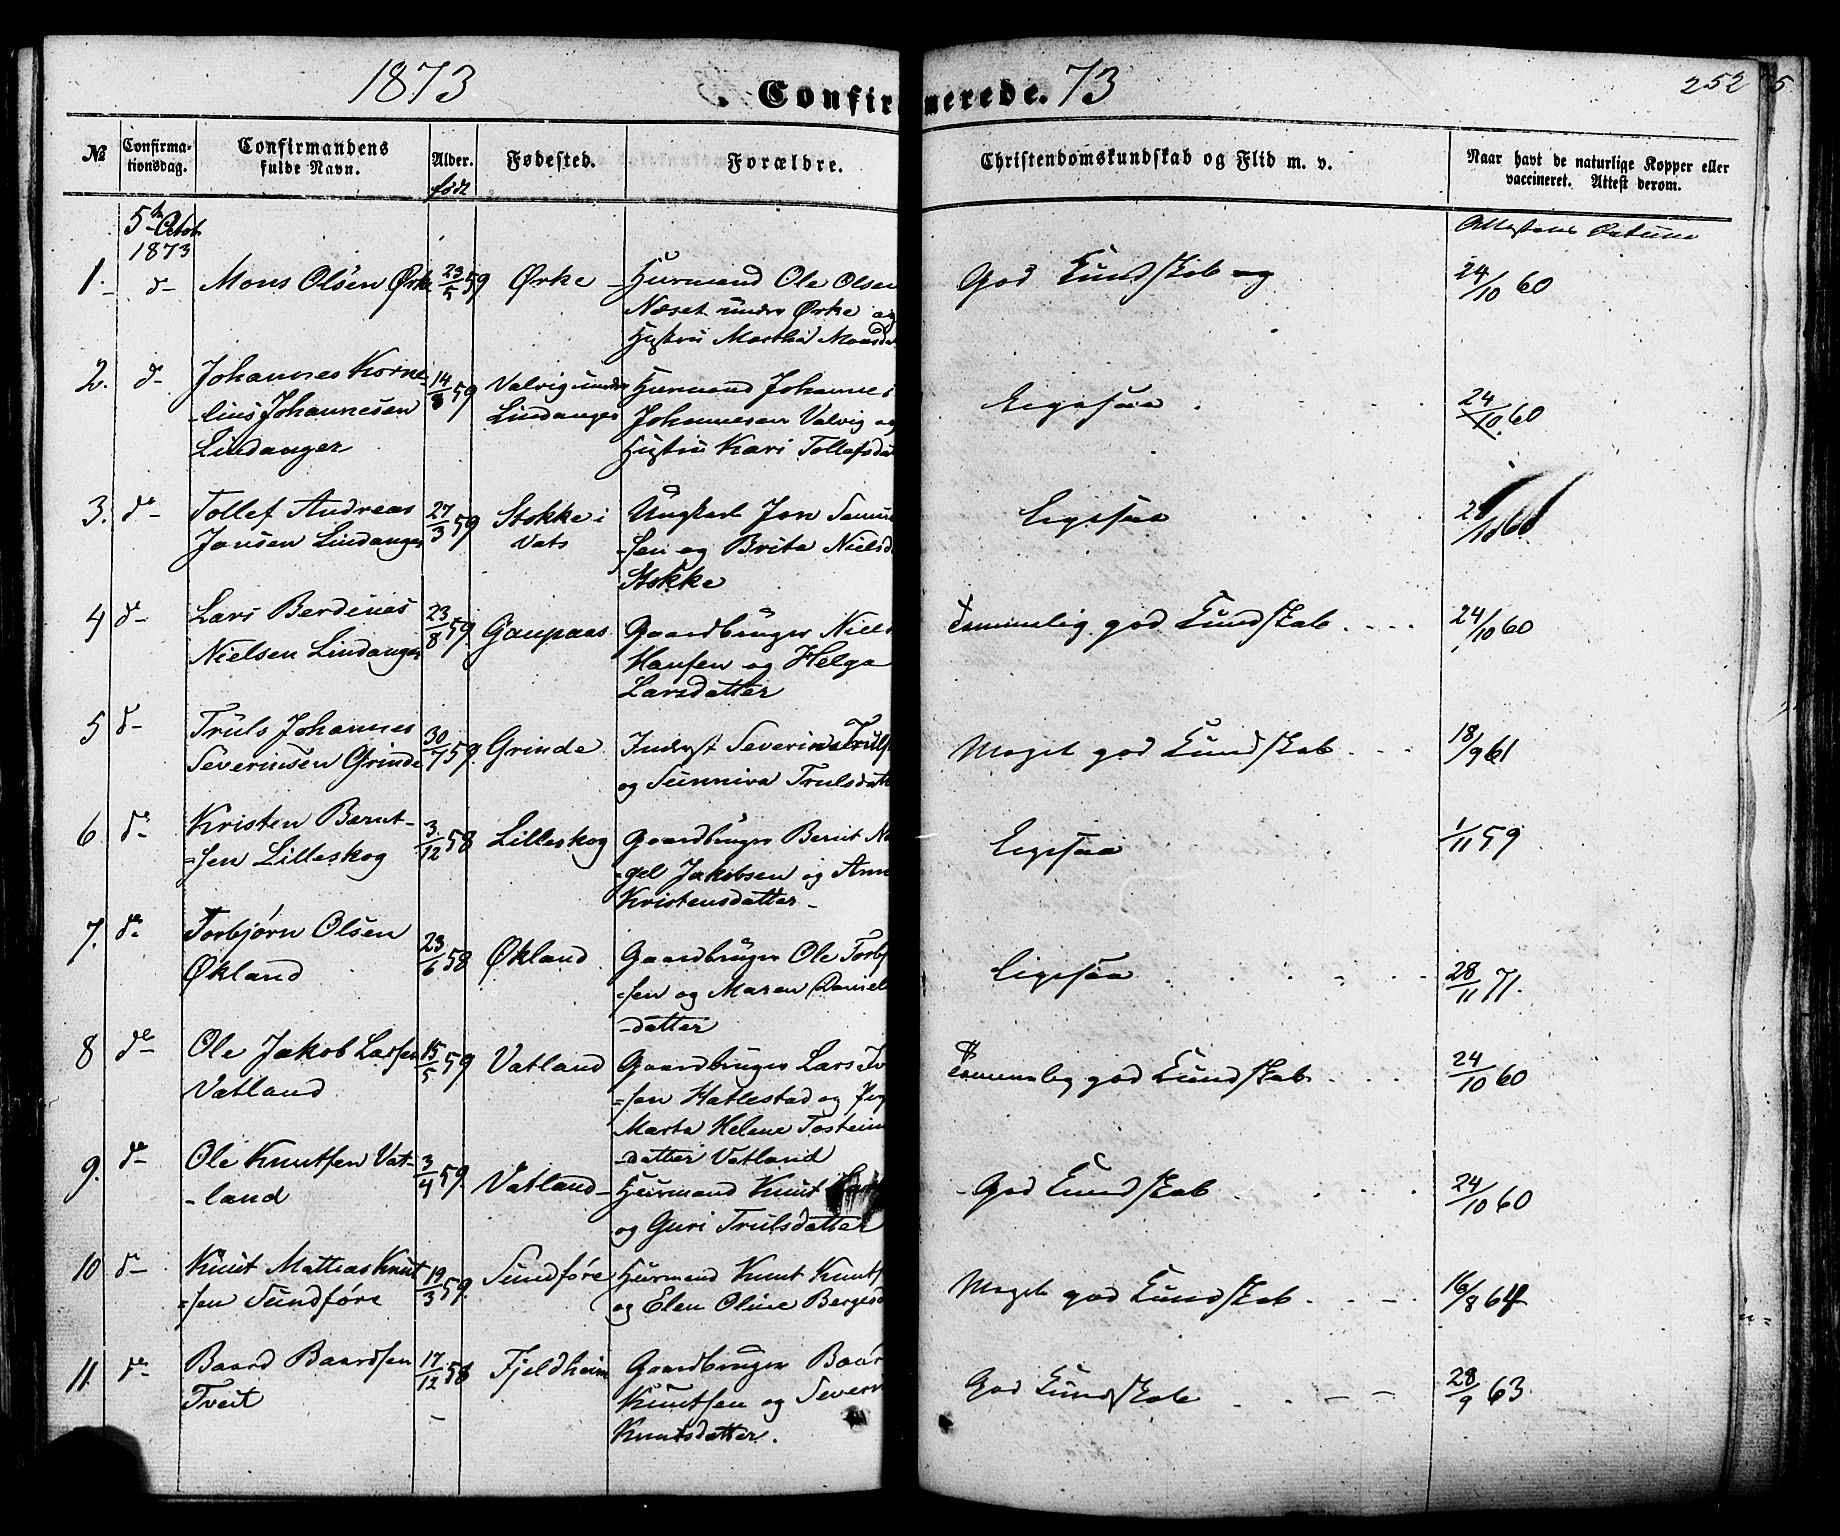 1873
Confirmerede. 73
252
№
Confirmationsdag.
Confirmandens fulde Navn.
Alder. født
Fødested.
Forældre.
Christendomskundskab og Flid m. v.
Naar havt de naturlige Kopper eller vaccineret. Attest derom.
Attestens Datum
5te Octob
1873
1. d- Mons Olsen Ørke 23/5 59 Ørke - Huusmand Ole Olsen God Kundskab og 24/10 60
Næset under Ørke og
Hustru Martha
2. d- Johannes Korne- 14/8 59 Valvig under Huusmand Johannes Ligesaa 24/10 60
-lius Johannesen Lindanger Johannesen Valvig og
Lindanger Hustru Kari Tollefsda
3. do- Tollef Andreas 27/3 59 Stokke i Ungkarl Jon Samu Ligesaa
Jonsen Lindanger Vats =sen og Brita Nielsd
Stokke
4 do- Lars Berdinas 23/8 59 Gaupaas Gaardbruger Niels Temmelig god Kundskab 24/10 60
Nielsen Lindanger Hansen og Helga
Larsdatter
5 d- Truls Johannes 30/1 59 Grinde Inderst Severin Truls Meget god Kundskab 18/9 61
Severinsen Grinde og Sunniva Trulsdatt
6 do- Kristen Bernt- 3/12 58 Lilleskog Gaardbruger Bernt Na Ligesaa 1/11 59
=sen Lilleskog -gel Jakobsen og Ann
Kristensdatter -
7. do- Torbjørn Olsen 23/6 58 Økland Gaardbruger Ole Torb Ligesaa 28/11 71.
Økland =sen og Maren Daniel
-datter
8 do- Ole Jakob Larsen 15/5 59 Vatland Gaardbruger Lars Temmelig god Kundskab 24/10 60
Vatland =sen Hatlestad og
Marta Helene Tosteins
-datter Vatland
9. do- Ole Knutsen Vat- 3/4 59 Vatland - Huusmand Knut - God Kundskab 24/10 60
-land og Guri Trulsdatter
10 d- Knut Mathias Knut 19/3 59 Sundføre Huusmand Knut Knuts Meget god Kundskab 16/8 64
=sen Sundføre og Elen Oline Bergesd
11. do- Baard Baardsen 17/12 58 Fjeldheim Gaardbruger Baar God Kundskab 28/9 63
Tveit Knutsen og Severi
Knutsdatter.